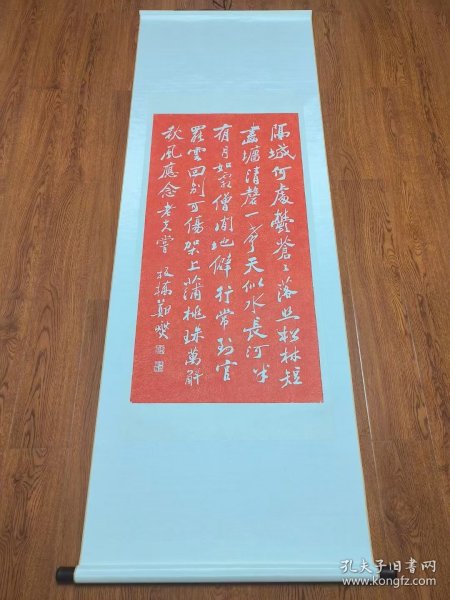 隔城何處鬱蒼々落照松林短
畫墻清磬一聲天似水長河半
夜月如霜僧閒地僻行常到官
罷雲回別可傷架上蒲桃珠萬斛
秋風應念老夫嘗 板橋鄭燮
孔夫子旧书网
www.kongfz.com